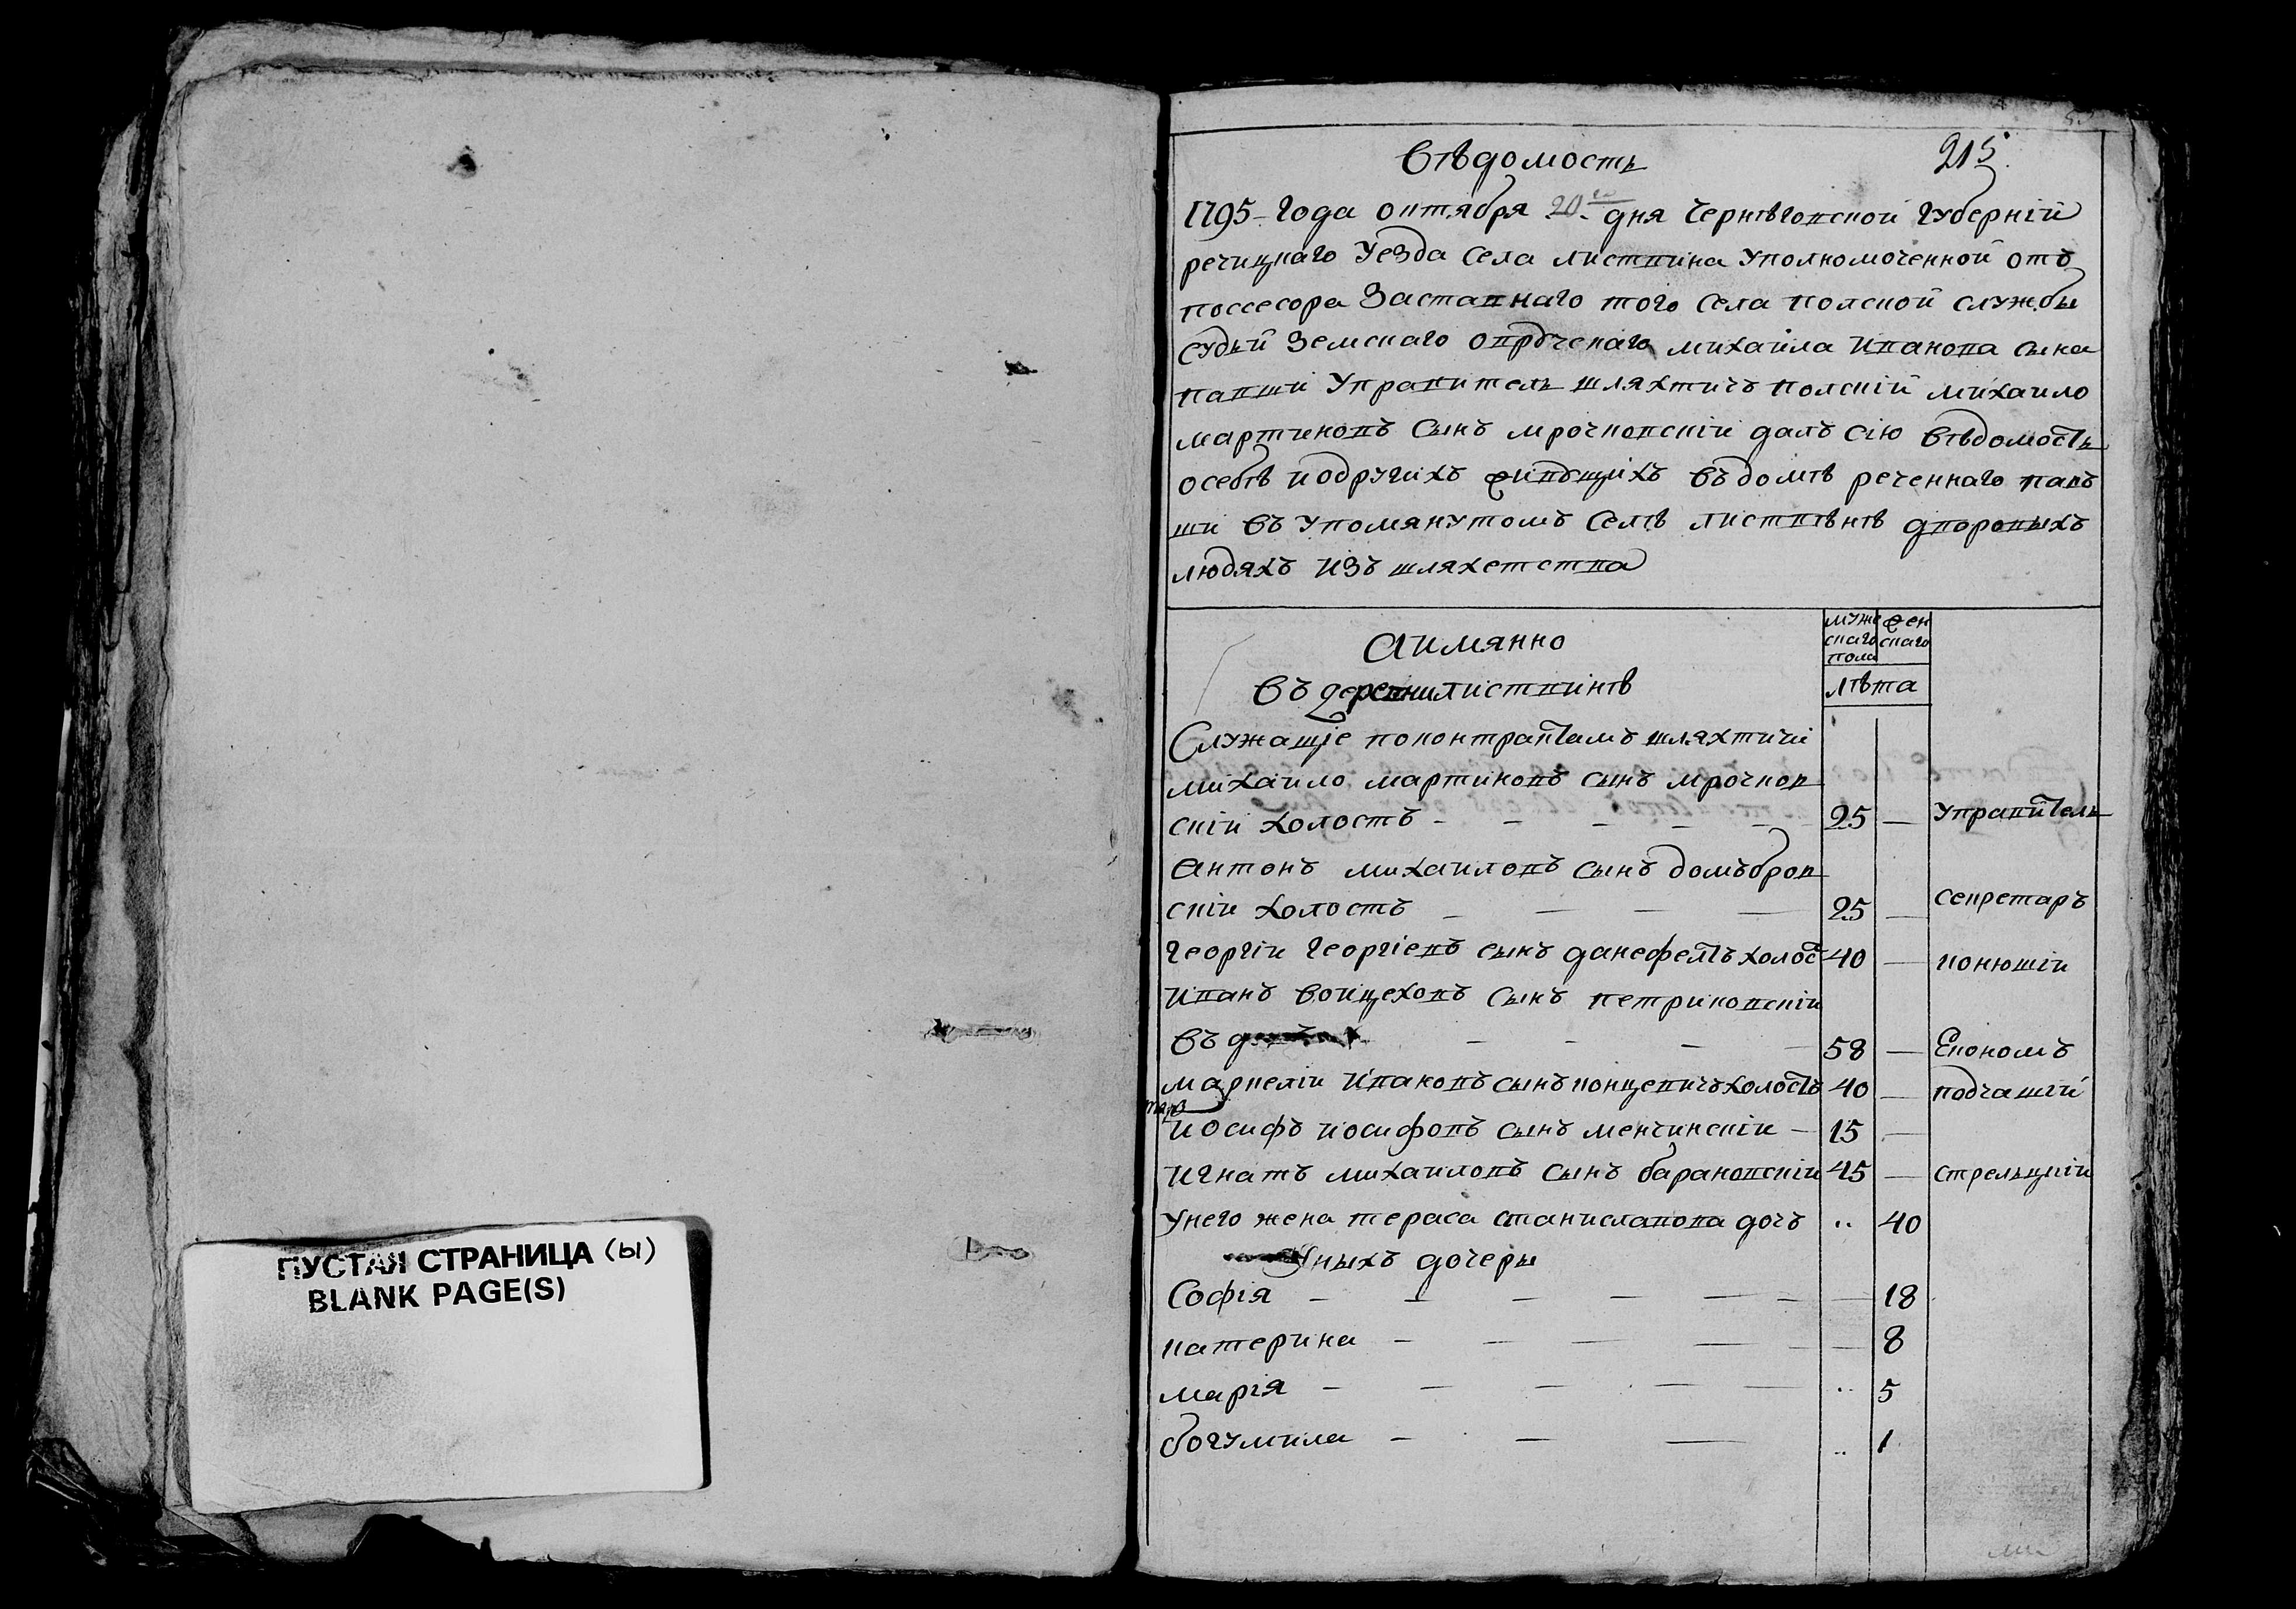 ПУСТАЯ СТРАНИЦА (Ы)
BLANK PAGE(S)
215
Вѣдомость
1795 года октября 20 дня Черниговской губерніи
речицкаго уезда села листвина уполномоченной отъ
поссесора заставнаго того села полской службы
судьи земскаго михаила иванова сына
павши управитель шляхтичъ полскій михаило
мартиновъ сынъ мрочковскій далъ сію вѣдомость
осебѣ иодругихъ живущихъ въ домѣ реченнаго пав
ши въ упомянутомъ селѣ листвѣнѣ дворовыхъ
людяхъ изъ шляхетства
Аимянно
муже
скаго
пола
жен
скаго
въ деревни листвинѣ
лѣта
Служащіе поконтрактамъ шляхтичи
михаило мартиновъ сынъ мрочков
скіи холостъ - - - - - 25 — управитель
антонъ михаиловъ сынъ домъбров
скіи холостъ — — — — 25 — секретаръ
георгіи георгіевъ сынъ данефелтъ холос 40 — конюшіи
иванъ воицеховъ сынъ петриковскіи
въ - - - - 58 — Економъ
маркеліи ивановъ сынъ концевичъ холостъ 40 — подчашій
иосифъ иосифовъ сынъ менчинскіи — 15 —
игнатъ михаиловъ сынъ барановскіи 45 — стрельцкіи
унего жена тераса станиславова дочъ .. 40
уныхъ дочеры
Софія — — — — — — 18
катерина — — — — — — 8
марія — — — — — .. 5
богумила — — — .. 1